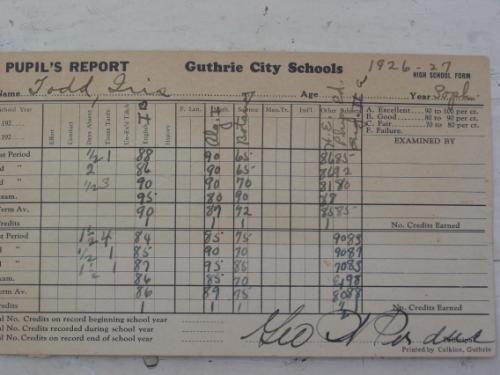 PUPIL'S REPORT Guthrie City Schools 1926-27
HIGH SCHOOL FORM
Name Todd, Iris Age Year Soph.
School Year Effort Conduct Days Absent Times Tardy English II History F. Lan. Math. Alg. II Science Botany Man. Tr. Ind'l. Other Subjects
A. Excellent 90 to 100 per ct.
192 B. Good 80 to 90 per ct.
192 C. Fair 70 to 80 per ct.
192 F. Failure.
EXAMINED BY
Period 1/2 1 88 90 65 86 85
" 2 86 90 65 86 92
" 1/2 3 90 90 70 81 80
Exam. 95 80 90
Term Av. 90 87 72 85 85
Credits 1 1 1 No. Credits Earned
Period 4 84 85 75 90 85
" 1 85 90 70 90 87
" 1 87 95 85 70 85
Exam. 86 85 70 98
Term Av. 86 89 75 80 88
Credits 1 1 1 No. Credits Earned
No. Credits on record beginning school year
No. Credits recorded during school year
No. Credits on record end of school year
Geo N Perdue
Principal.
Printed by Calkins, Guthrie